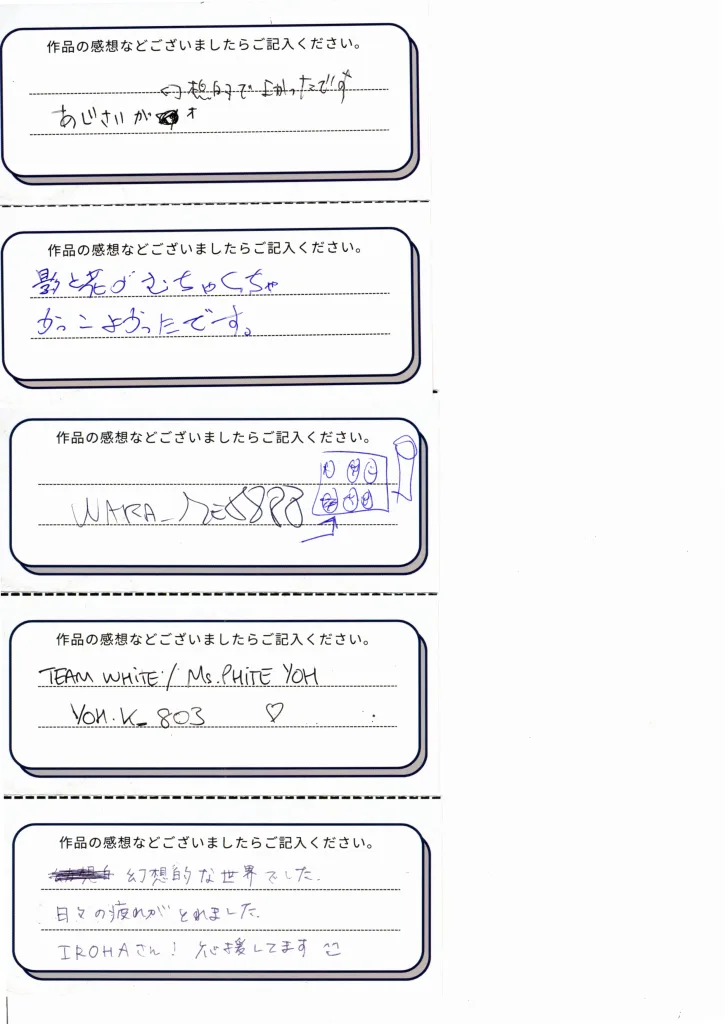 作品の感想などございましたらご記入ください。
幻想的でよかったです
あじさいが
作品の感想などございましたらご記入ください。
影と花がむちゃくちゃ
かっこよかったです。
作品の感想などございましたらご記入ください。
作品の感想などございましたらご記入ください。
TEAM WHITE / Ms. PHITE YOH
YOH.K_803 ♡
作品の感想などございましたらご記入ください。
幻想的な世界でした.
日々の疲れがとれました.
IROHAさん! 応援してます